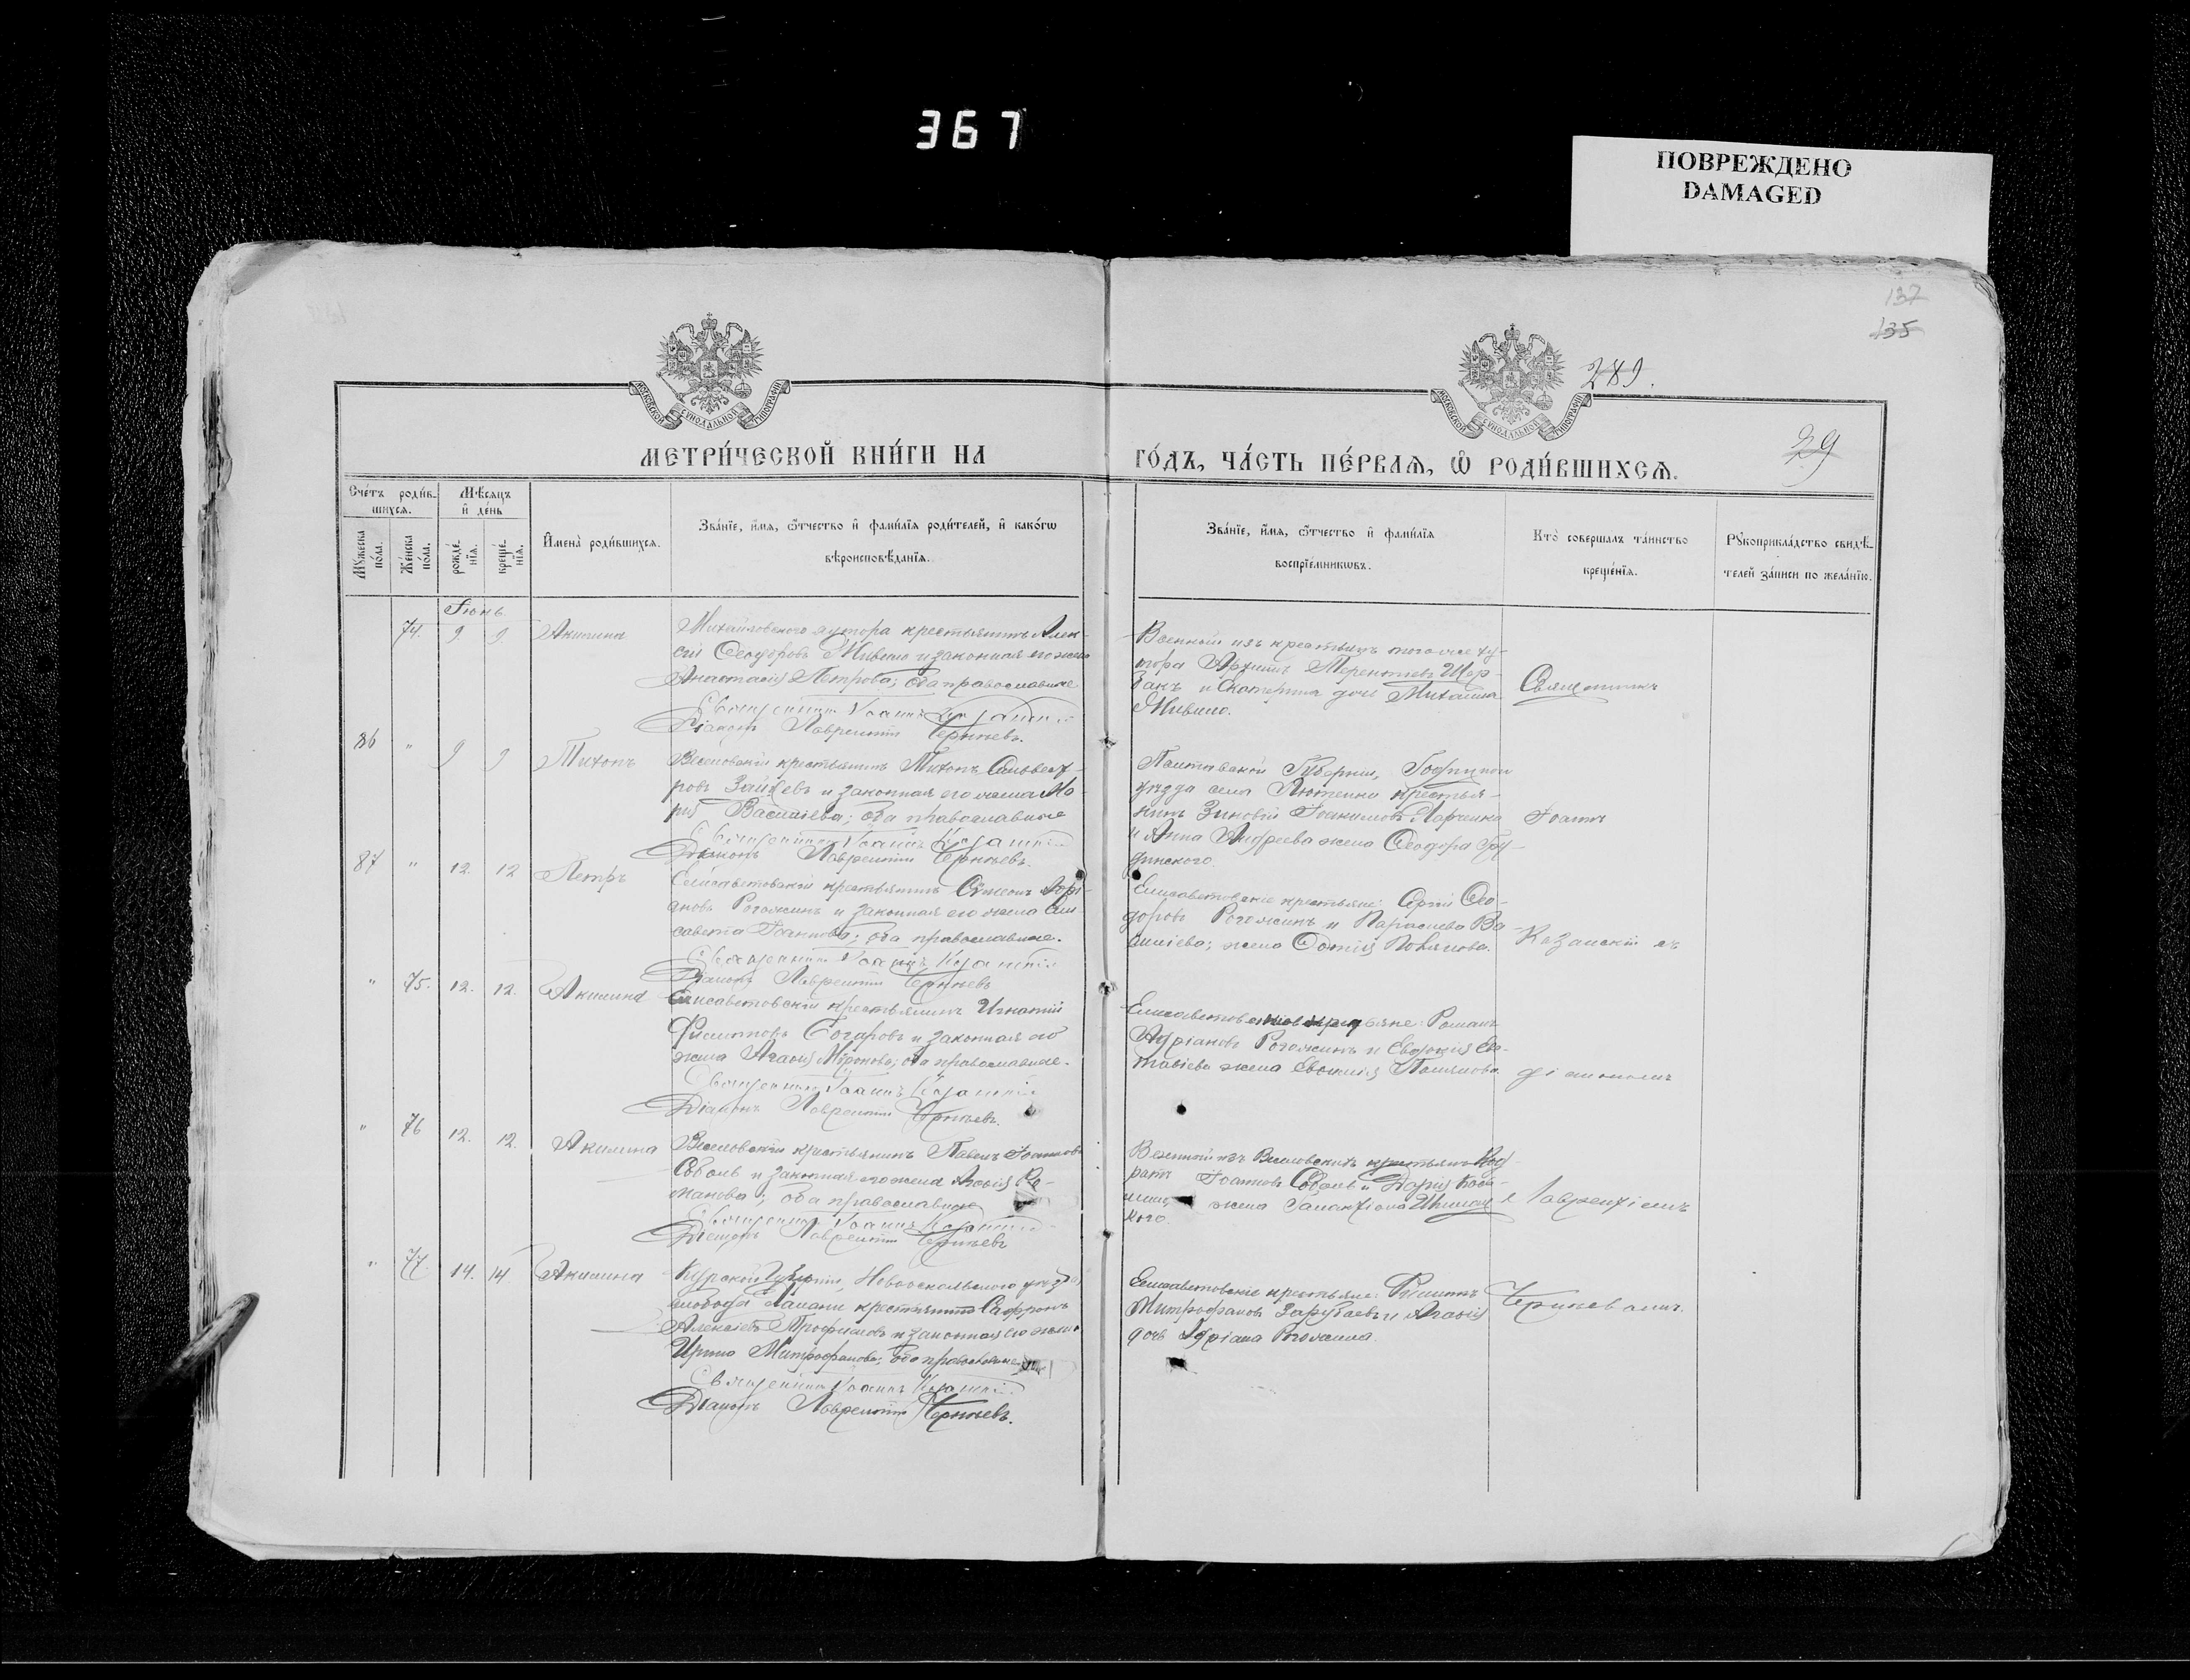 367
ПОВРЕЖДЕНО
DAMAGED
137
135
289.
29
МОСКОВСКОЙ СѴНОДАЛЬНОЙ ТИПОГРАФІИ
МОСКОВСКОЙ СѴНОДАЛЬНОЙ ТИПОГРАФІИ
МЕТРИ́ЧЕСКОЙ КНИ́ГИ НА
ГО́ДЪ, ЧА́СТЬ ПЕ́РВАѦ, Ѽ РОДИ́ВШИХСѦ.
Сче́тъ роди́в-
шихсѧ.
Мѣ́сѧцъ
и҆ де́нь
Мꙋ́жеска
по́ла.
Же́нска
по́ла.
рожде́-
нїѧ.
креще́-
нїѧ.
И҆мена̀ роди́вшихсѧ.
Зва́нїе, и҆́мѧ, ѻ҆́тчество и҆ фами́лїѧ роди́телей, и҆ како́гѡ
вѣроисповѣ́данїѧ.
Зва́нїе, и҆́мѧ, ѻ҆́тчество и҆ фами́лїѧ
воспрїе́мникѡвъ.
Кто̀ соверша́лъ та́инство
креще́нїѧ.
Рꙋкоприкла́дство свидѣ́-
телей за́писи по жела́нїю.
Іюнь
74. 9. 9 Акилина
Михайловского хутора крестьянинъ Алек-
сій Ѳеодоровъ и законная его жена
Анастасія Петрова; оба православные
Священникъ Іоаннъ Казанскій
Діаконъ Лаврентій Черняевъ.
Военный изъ крестьянъ того-же ху-
тора Архипъ Терентіевъ Щер-
бакъ и Екатерина дочь Михаила
Священникъ
86 " 9 9 Тихонъ
Веселовскій крестьянинъ Тихонъ Сильвест-
ровъ Зайцевъ и законная его жена Ма-
рія Васильева; оба православные
Священникъ Іоаннъ Казанскій
Діаконъ Лаврентій Черняевъ.
Полтавской Губерніи,
уѣзда села Лютенки крестья-
нинъ Зиновій Іоакимовъ Марченко
и Анна Андреева жена Ѳеодора
Іоаннъ
87 " 12 12 Петръ
Елисаветовскій крестьянинъ Сѵмеонъ Адрі-
ановъ Рогожинъ и законная его жена Ели-
савета Іоаннова; оба православные.
Священникъ Іоаннъ Казанскій
Діаконъ Лаврентій Черняевъ
Елисаветовскіе крестьяне: Сергій Ѳео-
доровъ Рогожинъ и Параскева Ва-
силіева; жена
Казанскій съ
" 75. 12. 12. Акилина
Елисаветовскій крестьянинъ Игнатій
Филиповъ и законная его
жена Агаѳія Мѵронова; оба православные.
Священникъ Іоаннъ Казанскій
Діаконъ Лаврентій Черняевъ.
Елисаветовскіе крестьяне: Романъ
Адріановъ Рогожинъ и Евдокія Ев-
жена
діакономъ
" 76 12. 12. Акилина
Веселовскій крестьянинъ Павелъ Іоанновъ
Соболь и законная его жена Агаѳія Ро-
манова; оба православные
Священникъ Іоаннъ Казанскій
Діаконъ Лаврентій Черняевъ
Военный изъ Веселовскихъ крестьянъ Код-
ратъ Іоанновъ Соболь и Дарія
жена Галактіона
Лаврентіемъ
" 77. 14. 14. Акилина
Курской Губерніи, Новооскольскаго уѣзда
слободы крестьянинъ Софронъ
Алексіевъ Трофимовъ и законная его жена
Ирина Митрофанова; оба православные
Священникъ Іоаннъ Казанскій
Діаконъ Лаврентій Черняевъ.
Елисаветовскіе крестьяне: Филиппъ
Митрофановъ Зарубаевъ и Агаѳія
дочь Адріана Рогожина.
Черняевымъ.